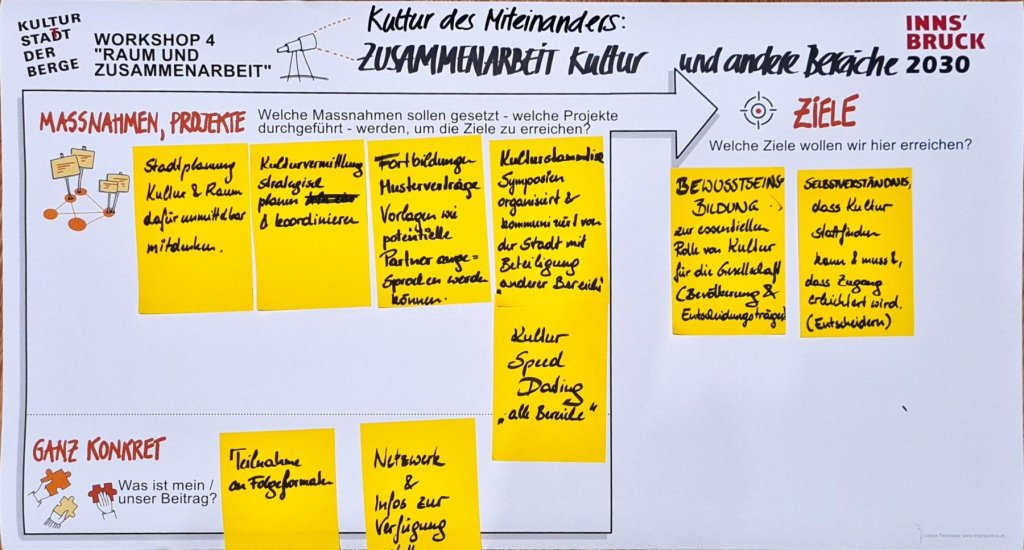 KULTUR
STADT
DER
BERGE
WORKSHOP 4
"RAUM UND
ZUSAMMENARBEIT"
Kultur des Miteinanders:
ZUSAMMENARBEIT Kultur und andere Bereiche
INNS'
BRUCK
2030
MASSNAHMEN, PROJEKTE
Welche Massnahmen sollen gesetzt - welche Projekte
durchgeführt - werden, um die Ziele zu erreichen?
Stadtplanung
Kultur & Raum
dafür unmittelbar
mitdenken.
Kulturvermittlung
strategisch
planen
& koordinieren
Fortbildungen
Musterverträge
Vorlagen wie
potentielle
Partner ange=
sprochen werden
können.
Kulturstammtische
Symposien
organisiert &
kommuniziert von
der Stadt mit
Beteiligung
"anderer Bereiche"
Kultur
Speed
Dating
„alle Bereiche"
ZIELE
Welche Ziele wollen wir hier erreichen?
BEWUSSTSEINS
BILDUNG
zur essentiellen
Rolle von Kultur
für die Gesellschaft
(Bevölkerung &
Entscheidungsträger)
SELBSTVERSTÄNDNIS,
dass Kultur
stattfinden
kann & muss &,
dass Zugang
erleichtert wird.
(Entscheidern)
GANZ KONKRET
Was ist mein /
unser Beitrag?
Teilnahme
an Folgeformaten
Netzwerk
&
Infos zur
Verfügung